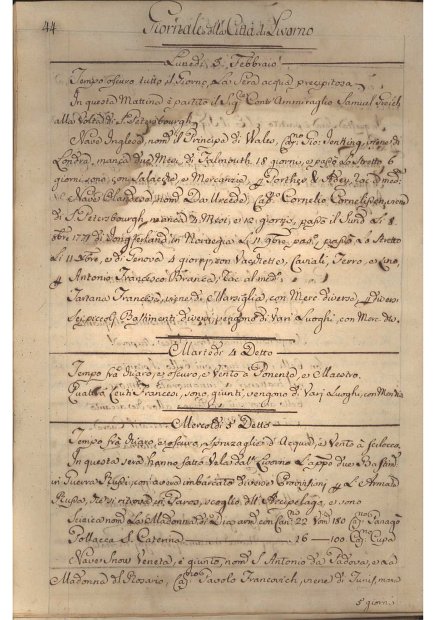 44
Giornale della Città di Livorno
Lunedì 3 Febbraio
Tempo oscuro tutto il Giorno, La Sera acqua precipitosa
In questa Mattina è partito il Sigr. Contr'Ammiraglio Samuel Greich
alla Volta di S. Petersbourgh
Nave Inglese, nom. il Principe di Wales, Capno. Gio: Jenking, viene di
Londra, manca due Mesi, di Falmouth 18 giorni, e passò lo Stretto 6
giorni sono, con Salacche, e Mercanzie, p Porther &
Nave Olandese, nom. Capno. Cornelio Cornelissen, viene
di S. Petersbourgh, manca 3 Mesi, e 12 giorni, passò il Sund li
8bre 1774 di in Norvegia li 11 9bre. passò lo Stretto
li 11 Xbre, e di Genova 4 giorni, con Vacchette, Caviali, Ferro, e Lino,
p Antonio Francesco Branca,
Tartana Francese, viene di Marsiglia, con Merc. diverse, p diversi
Sei piccoli Bastimenti diversi, vengono di Varj Luoghi, con Merc. div.
Martedì 4 Detto
Tempo frà Chiaro, e oscuro, e Vento à Ponente, e Maestro
Quattro Leuti Francesi, sono giunti, vengono di Varj Luoghi, con Merc. div.
Mercoldì 5 Detto
Tempo frà Chiaro, e oscuro, e Spruzzaglie d'Acqua, e Vento à Scilocco
In questa sera hanno fatto Vela dal Livorno Lappo due Bastim.
in Guerra Russi, con avere imbarcato diverse Provisioni p L'Armata
Russa, che si ritrova in Paros, scoglio dell'Arcipelago, e sono
Sciaica nom. La Madonna di armo. con Cani. 22 Uom. 180 Capno. Panagò
Pollacca S. Caterina 16 — 100. Capno.
Nave Snow Veneta, è giunto, nom. S. Antonio da Padova, e La
Madonna del Rosario, Capno. Paolo Francovich, viene di Tunis, manca
5 giorni